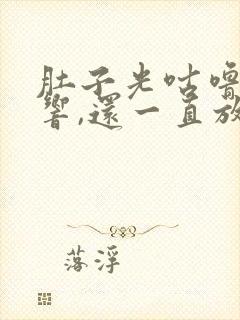 肚子光咕嚕
響,還一直放
落浮